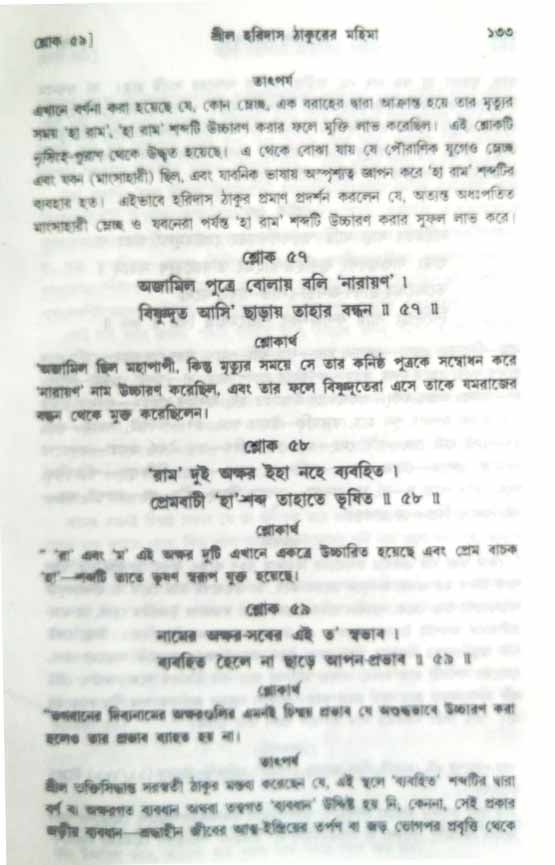 শ্লোক ৫৯] শ্রীল হরিদাস ঠাকুরের মহিমা ১৩৩
তাৎপর্য
এখানে বর্ণনা করা হয়েছে যে, কোন ম্লেচ্ছ, এক বরাহের দ্বারা আক্রান্ত হয়ে তার মৃত্যুর
সময় 'হা রাম', 'হা রাম' শব্দটি উচ্চারণ করার ফলে মুক্তি লাভ করেছিল। এই শ্লোকটি
নৃসিংহ-পুরাণ থেকে উদ্ধৃত হয়েছে। এ থেকে বোঝা যায় যে পৌরাণিক যুগেও ম্লেচ্ছ
এবং যবন (মাংসাহারী) ছিল, এবং যাবনিক ভাষায় অস্পৃশ্যত্ব জ্ঞাপন করে 'হা রাম' শব্দটির
ব্যবহার হত। এইভাবে হরিদাস ঠাকুর প্রমাণ প্রদর্শন করলেন যে, অত্যন্ত অধঃপতিত
মাংসাহারী ম্লেচ্ছ ও যবনেরা পর্যন্ত 'হা রাম' শব্দটি উচ্চারণ করার সুফল লাভ করে।
শ্লোক ৫৭
অজামিল পুত্রে বোলায় বলি 'নারায়ণ' ।
বিষ্ণুদূত আসি' ছাড়ায় তাহার বন্ধন ॥ ৫৭ ॥
শ্লোকার্থ
"অজামিল ছিল মহাপাপী, কিন্তু মৃত্যুর সময়ে সে তার কনিষ্ঠ পুত্রকে সম্বোধন করে
'নারায়ণ' নাম উচ্চারণ করেছিল, এবং তার ফলে বিষ্ণুদূতেরা এসে তাকে যমরাজের
বন্ধন থেকে মুক্ত করেছিলেন।
শ্লোক ৫৮
'রাম' দুই অক্ষর ইহা নহে ব্যবহিত ।
প্রেমবাচী 'হা'-শব্দ তাহাতে ভূষিত ॥ ৫৮ ॥
শ্লোকার্থ
" 'রা' এবং 'ম' এই অক্ষর দুটি এখানে একত্রে উচ্চারিত হয়েছে এবং প্রেম বাচক
'হা'—শব্দটি তাতে ভূষণ স্বরূপ যুক্ত হয়েছে।
শ্লোক ৫৯
নামের অক্ষর-সবের এই ত' স্বভাব ।
ব্যবহিত হৈলে না ছাড়ে আপন-প্রভাব ॥ ৫৯ ॥
শ্লোকার্থ
"ভগবানের দিব্যনামের অক্ষরগুলির এমনই চিন্ময় প্রভাব যে অশুদ্ধভাবে উচ্চারণ করা
হলেও তার প্রভাব ব্যাহত হয় না।
তাৎপর্য
শ্রীল ভক্তিসিদ্ধান্ত সরস্বতী ঠাকুর মন্তব্য করেছেন যে, এই স্থলে 'ব্যবহিত' শব্দটির দ্বারা
বর্ণ বা অক্ষরগত ব্যবধান অথবা তত্ত্বগত 'ব্যবধান' উদ্দিষ্ট হয় নি, কেননা, সেই প্রকার
জড়ীয় ব্যবধান—শ্রদ্ধাহীন জীবের আত্ম-ইন্দ্রিয়ের তর্পণ বা জড় ভোগপর প্রবৃত্তি থেকে